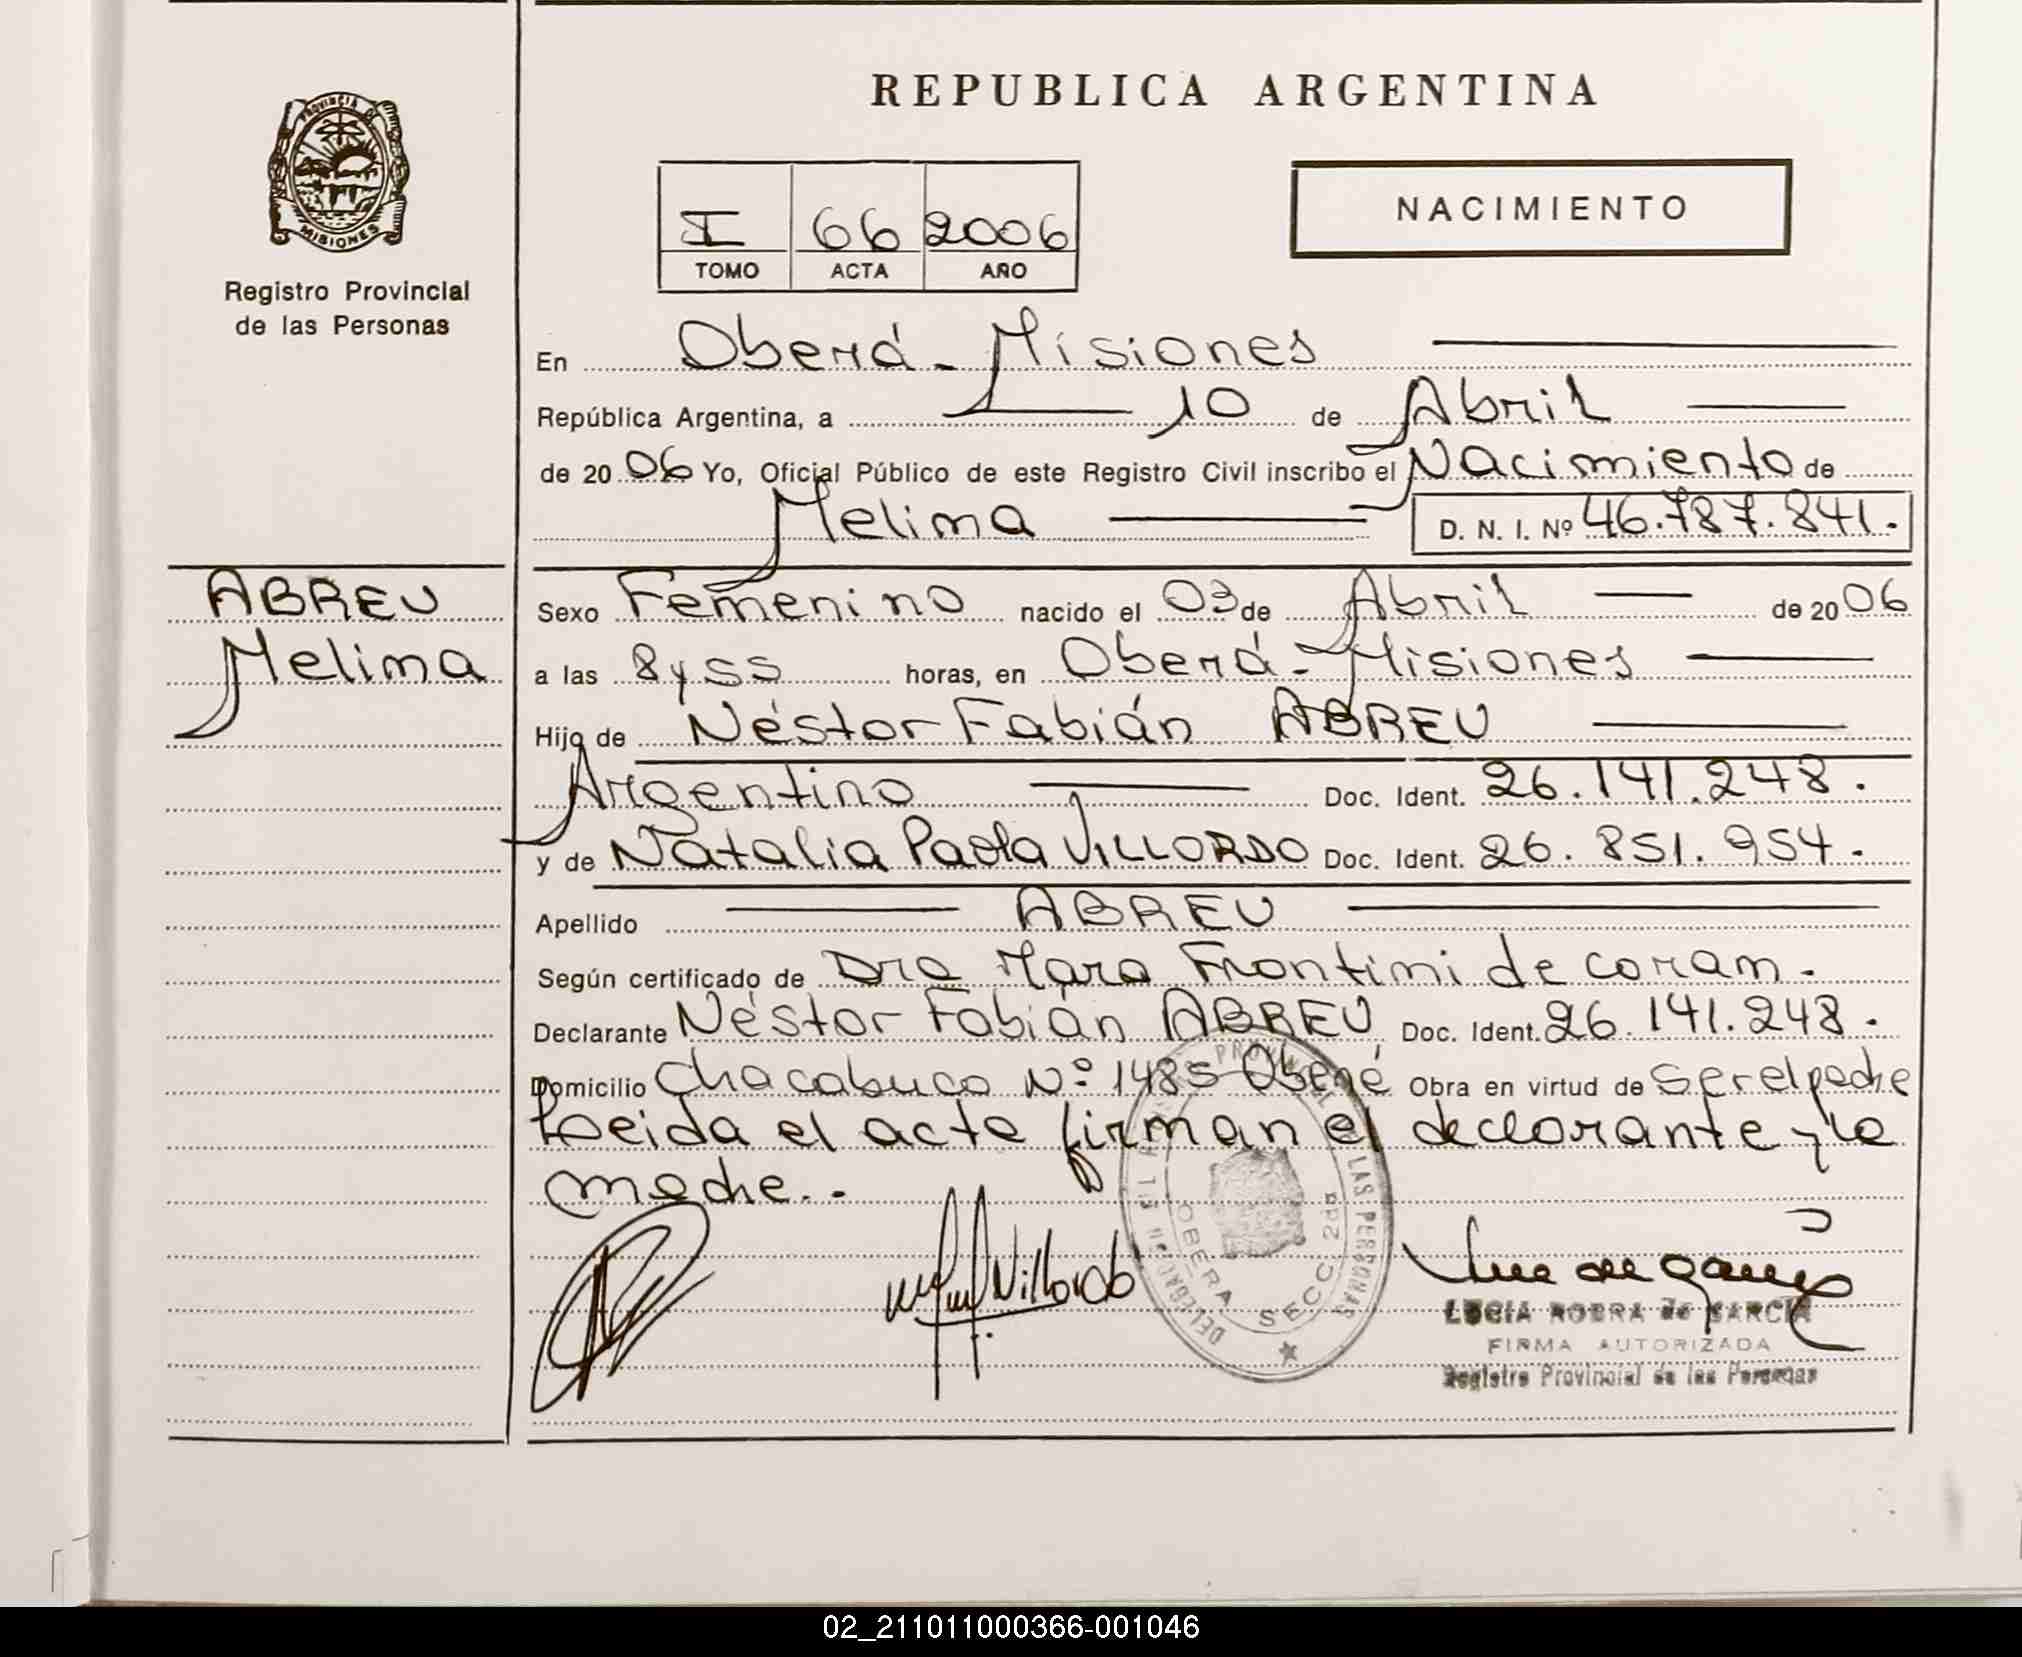 REPUBLICA ARGENTINA
PROVINCIA DE
MISIONES
Registro Provincial
de las Personas
I 66 2006
TOMO ACTA AÑO
NACIMIENTO
En Oberá - Misiones
República Argentina, a 10 de Abril
de 2006 Yo, Oficial Público de este Registro Civil inscribo el Nacimiento de
Melina D. N. I. Nº 46.787.841.
ABREU
Melina
Sexo Femenino nacido el 03 de Abril de 2006
a las 8 y 55 horas, en Oberá - Misiones
Hijo de Néstor Fabián ABREU
Argentino Doc. Ident. 26.141.248.
y de Natalia Paola VILLORDO Doc. Ident. 26.851.954.
Apellido ABREU
Según certificado de Dra Mara Frontini de
Declarante Néstor Fabián ABREU Doc. Ident. 26.141.248.
Domicilio Chacabuco Nº 1485 Oberá Obra en virtud de Ser el padre
Leida el acta firman el declarante y la
madre. -
Villordo
DELEGACION REGISTRO PROVINCIAL DE LAS PERSONAS
OBERA SECC. 2da
LUCIA ROBRA de GARCIA
FIRMA AUTORIZADA
Registro Provincial de las Personas
02_211011000366-001046